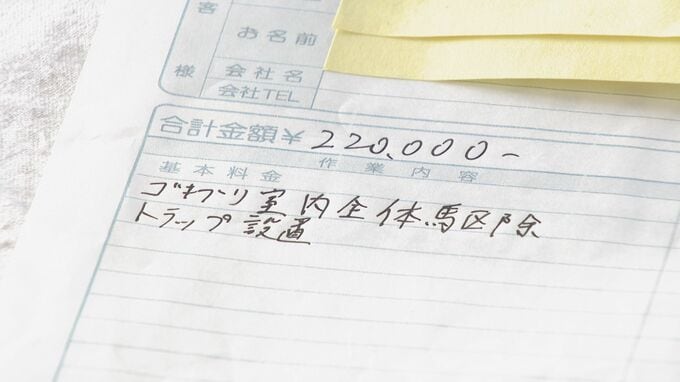 客
お名前
様
会社名
会社TEL
合計金額¥ 220.000-
基本料金 作業内容
ゴキブリ室内全体駆除
トラップ設置